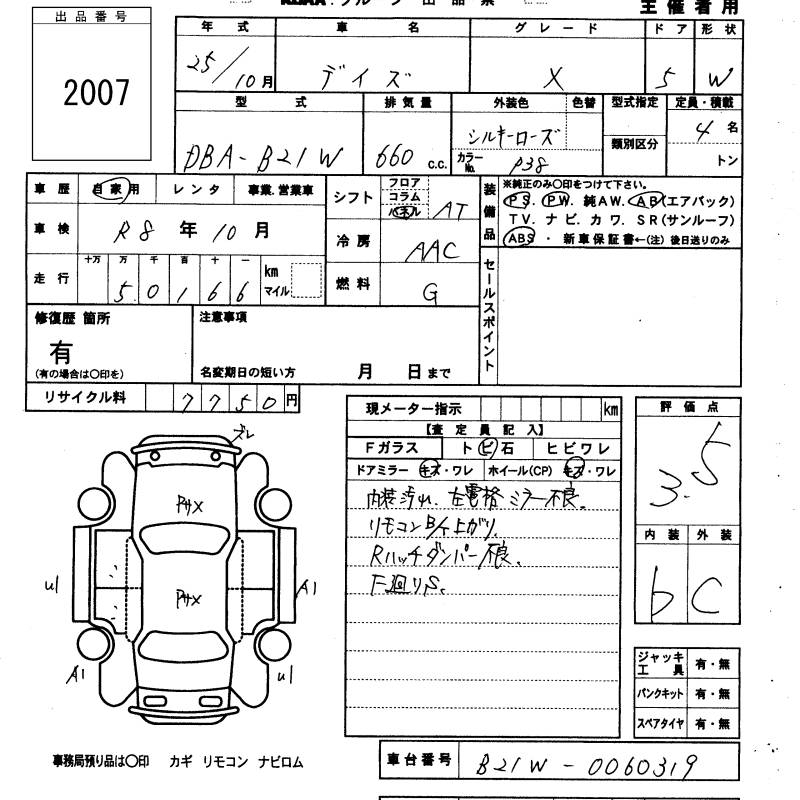 出品番号
2007
主催者用
年式 車名 グレード ドア 形状
25/10月 デイズ X 5 W
型式 排気量 外装色 色替 型式指定 定員・積載
DBA-B21W 660 c.c. シルキーローズ 4名
カラーNo. P38 類別区分 トン
車歴 自家用 レンタ 事業.営業車
車検 R8年10月
走行 十万 万 千 百 十 一
50166 km マイル
シフト フロア コラム パネル AT
冷房 AAC
燃料 G
装備品
※純正のみ○印をつけて下さい。
PS. PW. 純AW. AB(エアバック)
TV. ナビ. カワ. SR(サンルーフ)
ABS ・ 新車保証書←(注) 後日送りのみ
セールスポイント
修復歴 箇所
有
(有の場合は○印を)
注意事項
名変期日の短い方 月 日まで
リサイクル料 7750円
現メーター指示 km
【査定員記入】
Fガラス ト ビ 石 ヒビワレ
ドアミラー キズ・ワレ ホイール(CP) キズ・ワレ
内装汚れ. 左電格ミラー不良.
リモコンB/下上がり.
Rハッチダンパー不良.
F廻りS.
評価点
3.5
内装 外装
b C
ズレ
PタX
PタX
U1
A1
A1
U1
ジャッキ工具 有・無
パンクキット 有・無
スペアタイヤ 有・無
事務局預り品は○印 カギ リモコン ナビロム
車台番号 B21W-0060319